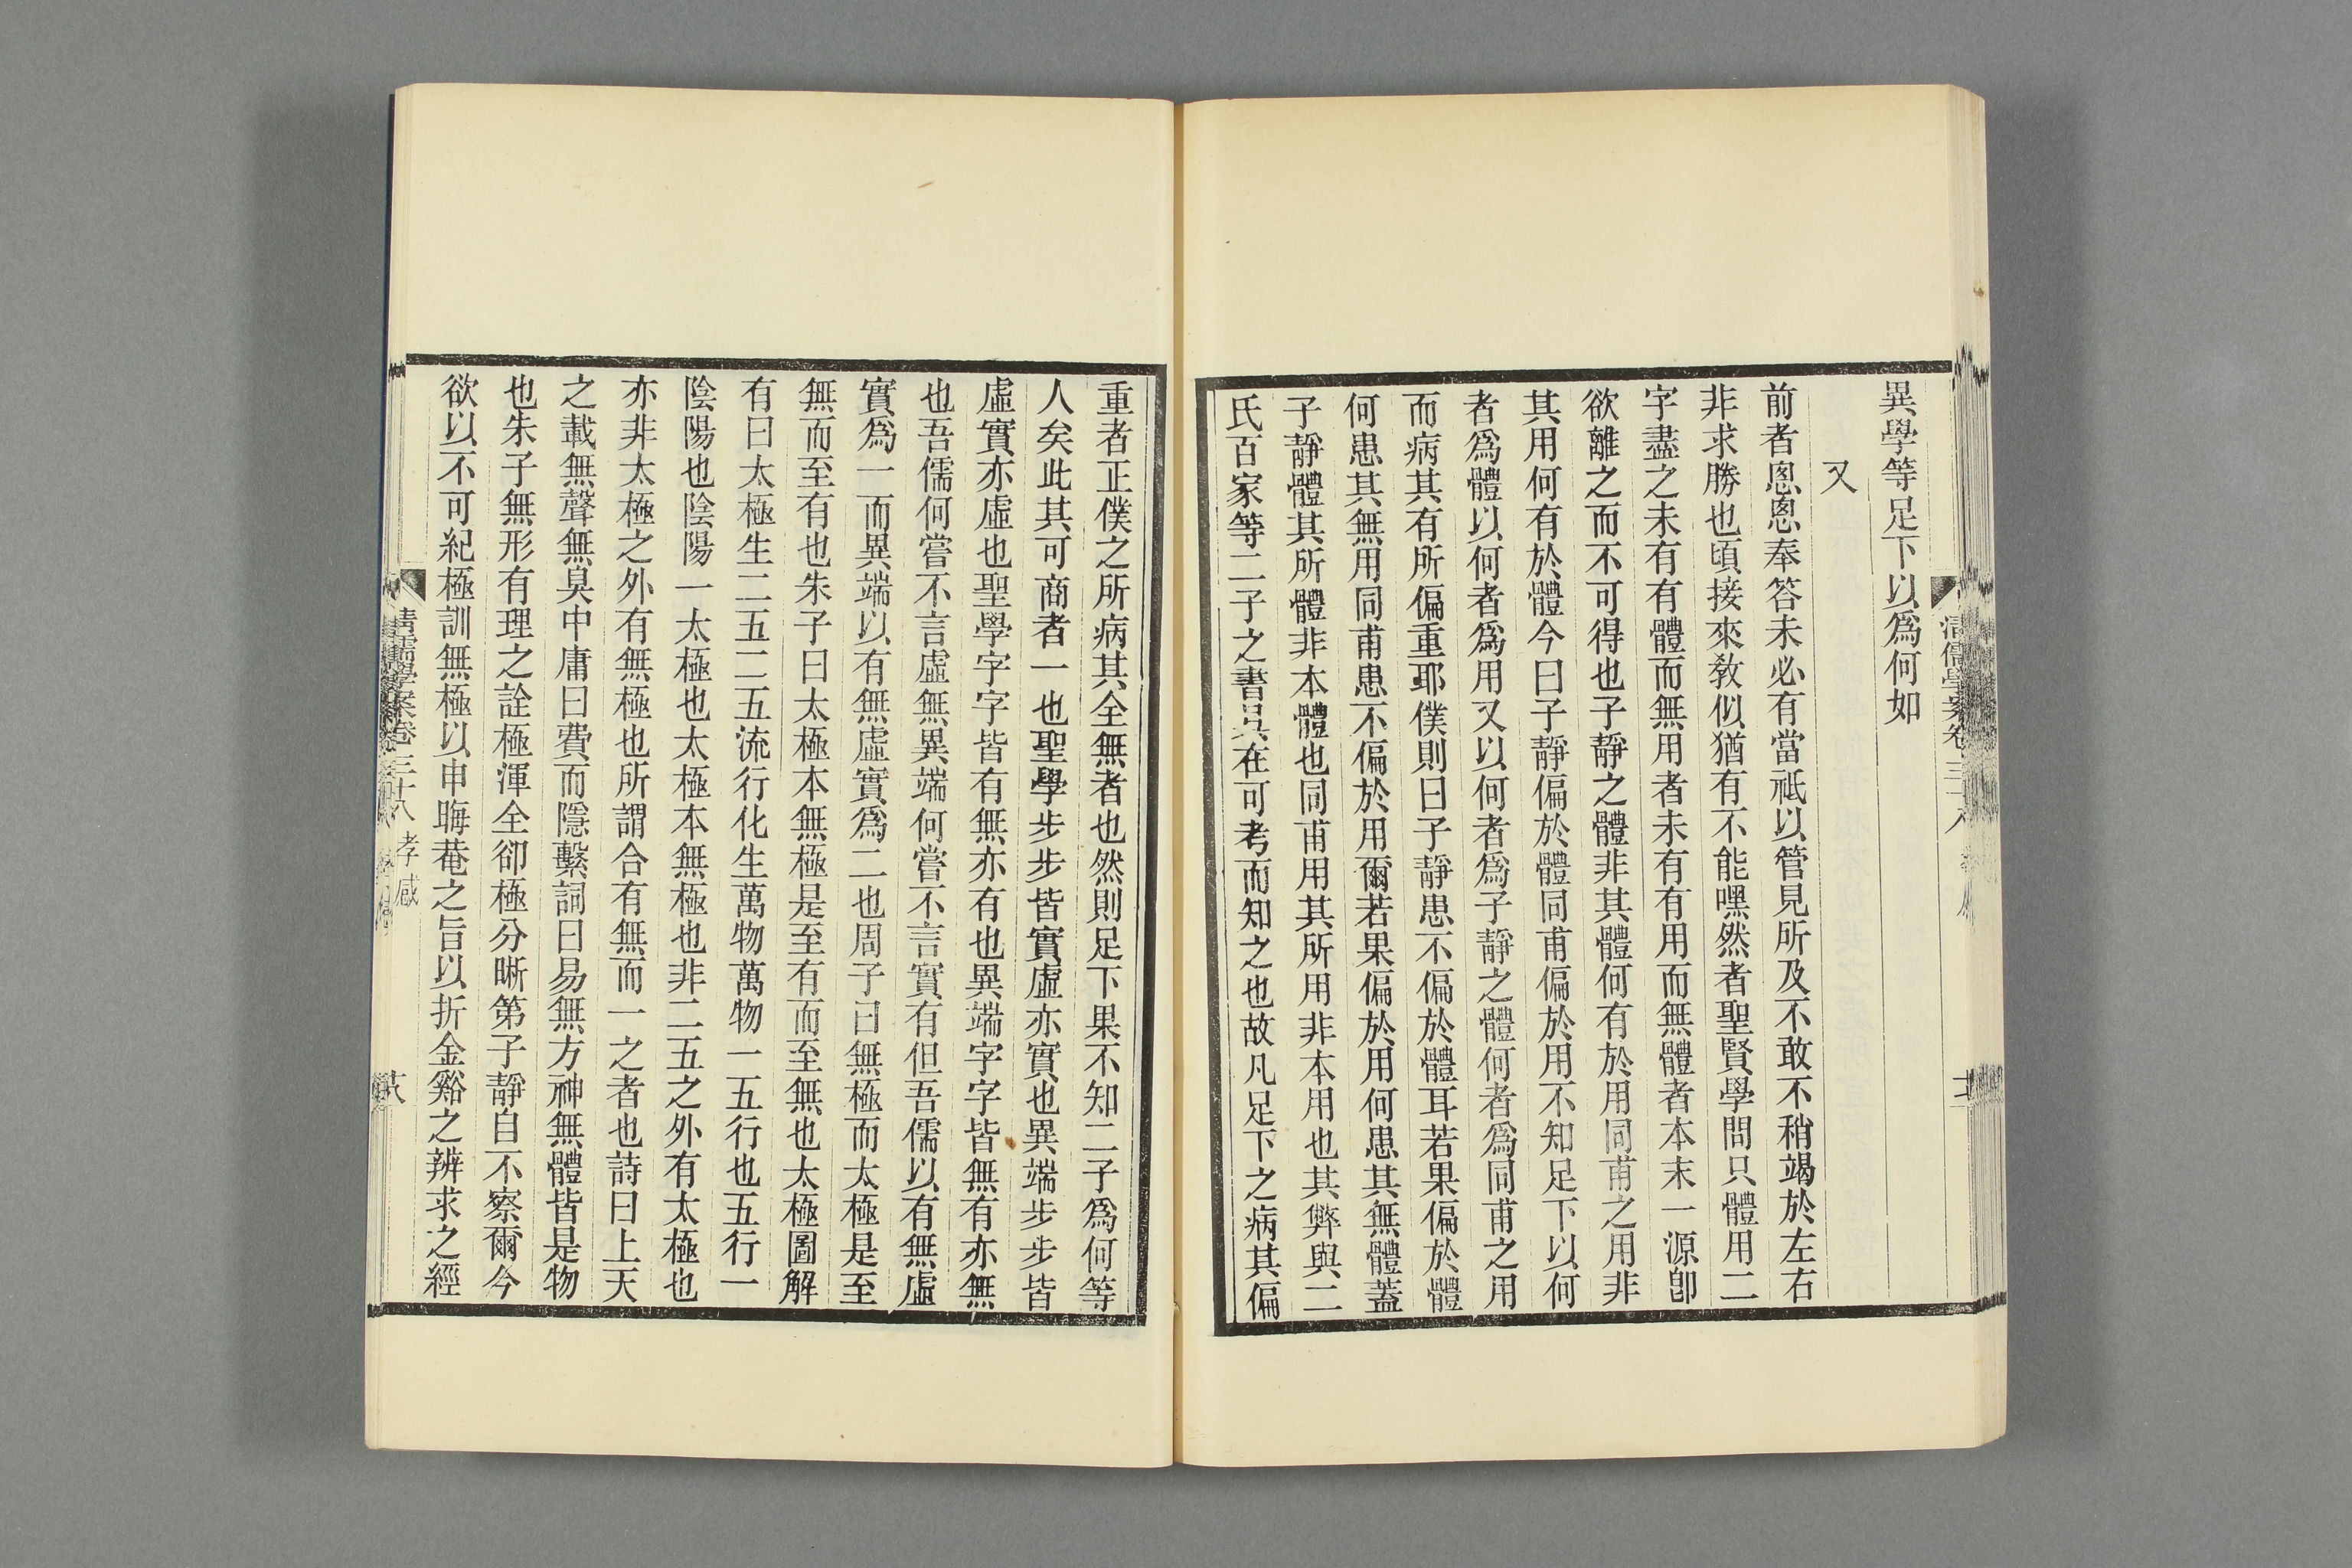 異學等足下以爲何如
又
前者悤悤奉答未必有當祗以管見所及不敢不稍竭於左右
非求勝也頃接來敎似猶有不能嘿然者聖賢學問只體用二
字盡之未有有體而無用者未有有用而無體者本末一源卽
欲離之而不可得也子靜之體非其體何有於用同甫之用非
其用何有於體今曰子靜偏於體同甫偏於用不知足下以何
者爲體以何者爲用又以何者爲子靜之體何者爲同甫之用
而病其有所偏重耶僕則曰子靜患不偏於體耳若果偏於體
何患其無用同甫患不偏於用爾若果偏於用何患其無體蓋
子靜體其所體非本體也同甫用其所用非本用也其弊與二
氏百家等二子之書具在可考而知之也故凡足下之病其偏
重者正僕之所病其全無者也然則足下果不知二子爲何等
人矣此其可商者一也聖學步步皆實虛亦實也異端步步皆
虛實亦虛也聖學字字皆有無亦有也異端字字皆無有亦無
也吾儒何嘗不言虛無異端何嘗不言實有但吾儒以有無虛
實爲一而異端以有無虛實爲二也周子曰無極而太極是至
無而至有也朱子曰太極本無極是至有而至無也太極圖解
有曰太極生二五二五流行化生萬物萬物一五行也五行一
陰陽也陰陽一太極也太極本無極也非二五之外有太極也
亦非太極之外有無極也所謂合有無而一之者也詩曰上天
之載無聲無臭中庸曰費而隱繫詞曰易無方神無體皆是物
也朱子無形有理之詮極渾全卻極分晰第子靜自不察爾今
欲以不可紀極訓無極以申晦菴之旨以折金谿之辨求之經
清儒學案卷三十八 孝感
十八